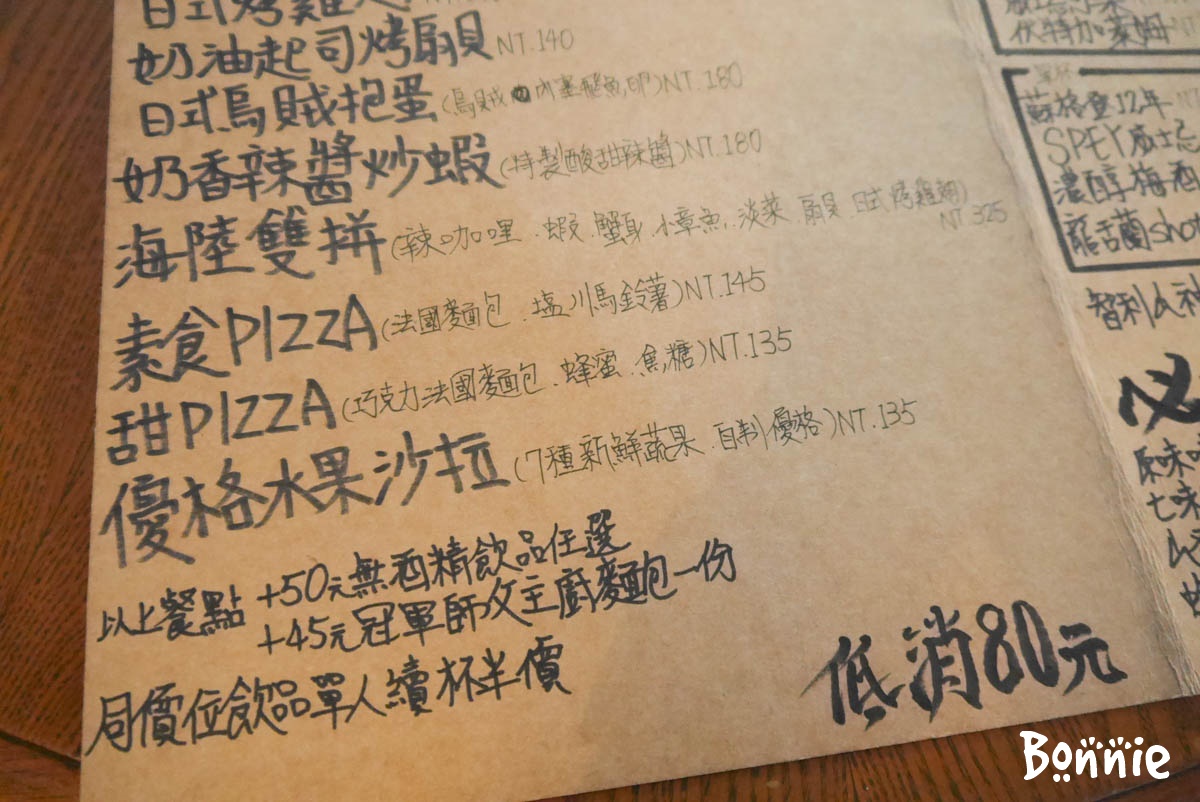 日式烤雞
奶油起司烤扇貝NT.140
日式烏賊抱蛋(烏賊 內塞飛魚卵)NT.180
奶香辣醬炒蝦(特製酸甜辣醬)NT.180
海陸雙拼(辣咖哩.蝦.蟹身.小章魚.淡菜.扇貝.日式烤雞翅)
NT.325
素食PIZZA(法國麵包.塩川馬鈴薯)NT.145
甜PIZZA(巧克力法國麵包.蜂蜜.焦糖)NT.135
優格水果沙拉(7種新鮮蔬果.自制優格)NT.135
以上餐點 +50元無酒精飲品任選
+45元冠軍師父主廚麵包一份
同價位飲品單人續杯半價
低消80元
伏特加萊姆
蘇格登12年
SPEY威士忌
濃醇梅酒
龍舌蘭shot
智利
必
原味
七味
Bonnie